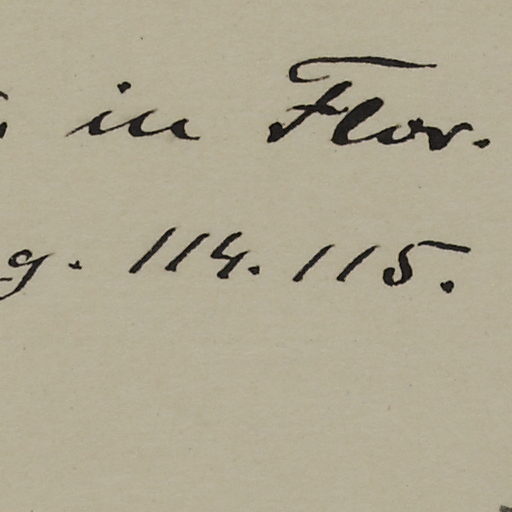 in Flor.
g. 114. 115.